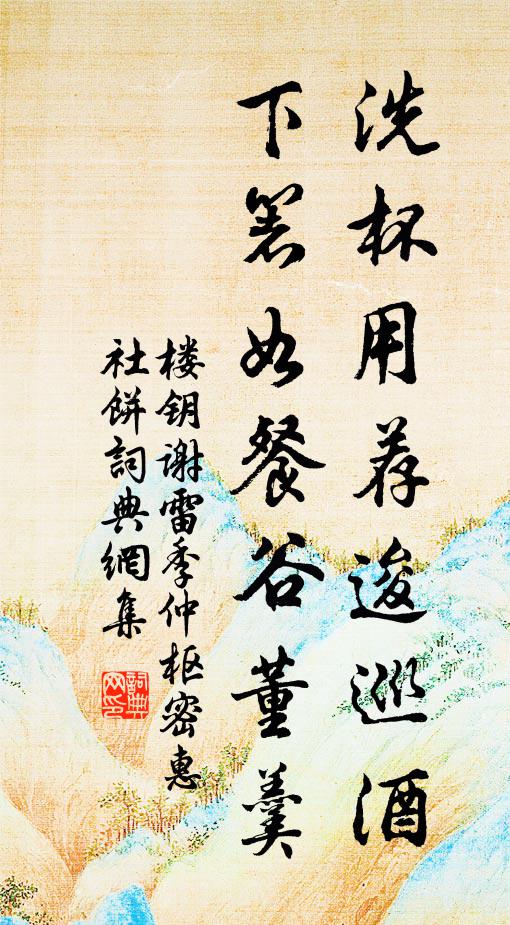 洗杯用荐逡巡酒
下箸如餐谷董羹
楼钥谢雷季仲枢密惠
社饼詞典網集
詞典
网印